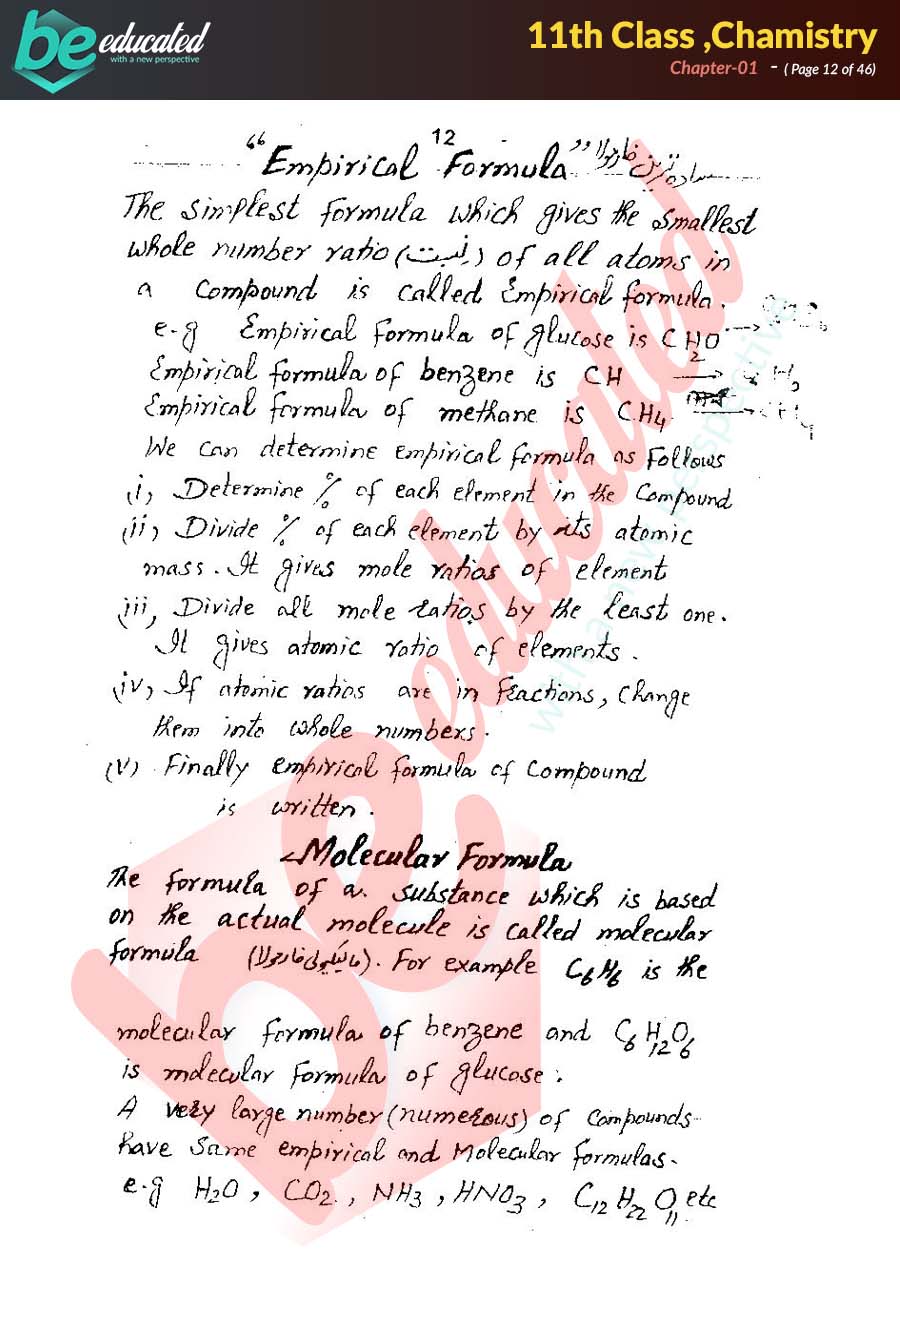 be educated
with a new perspective
11th Class ,Chamistry
Chapter-01 - ( Page 12 of 46)
12
"Empirical Formula" سادہ ترین فارمولا
The simplest formula which gives the smallest
whole number ratio (نسبت) of all atoms in
a compound is called Empirical formula.
e.g Empirical formula of glucose is CH2O →
Empirical formula of benzene is CH →
Empirical formula of methane is CH4 →
We can determine empirical formula as Follows
(i) Determine % of each element in the Compound
(ii) Divide % of each element by its atomic
mass. It gives mole ratios of element
(iii) Divide all mole ratios by the least one.
It gives atomic ratio of elements.
(iv) If atomic ratios are in Fractions, change
them into whole numbers.
(V) Finally empirical formula of Compound
is written.
Molecular Formula
The formula of a substance which is based
on the actual molecule is called molecular
formula (مالیکیولی فارمولا). For example C6H6 is the
molecular formula of benzene and C6H12O6
is molecular formula of glucose.
A very large number (numerous) of compounds
have same empirical and Molecular formulas.
e.g H2O, CO2, NH3, HNO3, C12H22O11 etc
be educated
with a new perspective